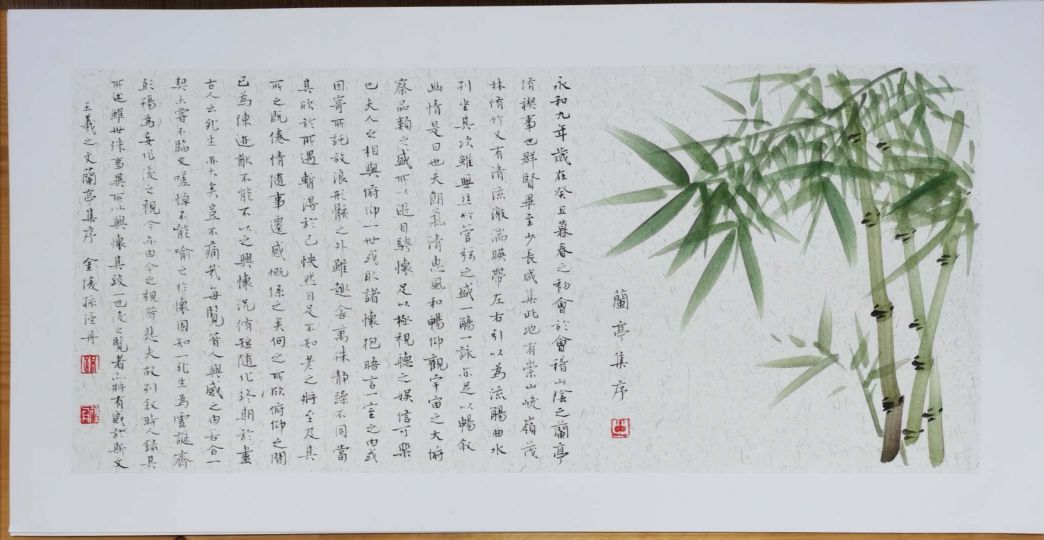 蘭亭集序
永和九年歲在癸丑暮春之初會於會稽山陰之蘭亭
脩禊事也群賢畢至少長咸集此地有崇山峻嶺茂
林脩竹又有清流激湍暎帶左右引以為流觴曲水
列坐其次雖無絲竹管弦之盛一觴一詠亦足以暢敘
幽情是日也天朗氣清惠風和暢仰觀宇宙之大俯
察品類之盛所以遊目騁懷足以極視聽之娛信可樂
也夫人之相與俯仰一世或取諸懷抱晤言一室之內或
因寄所託放浪形骸之外雖趣舍萬殊靜躁不同當
其欣於所遇暫得於己快然自足不知老之將至及其
所之既倦情隨事遷感慨係之矣向之所欣俯仰之間
已為陳迹猶不能不以之興懷況脩短隨化終期於盡
古人云死生亦大矣豈不痛哉每覽昔人興感之由若合一
契未嘗不臨文嗟悼不能喻之於懷固知一死生為虛誕齊
彭殤為妄作後之視今亦由今之視昔悲夫故列敘時人錄其
所述雖世殊事異所以興懷其致一也後之覽者亦將有感於斯文
王羲之文蘭亭集序 金陵孫